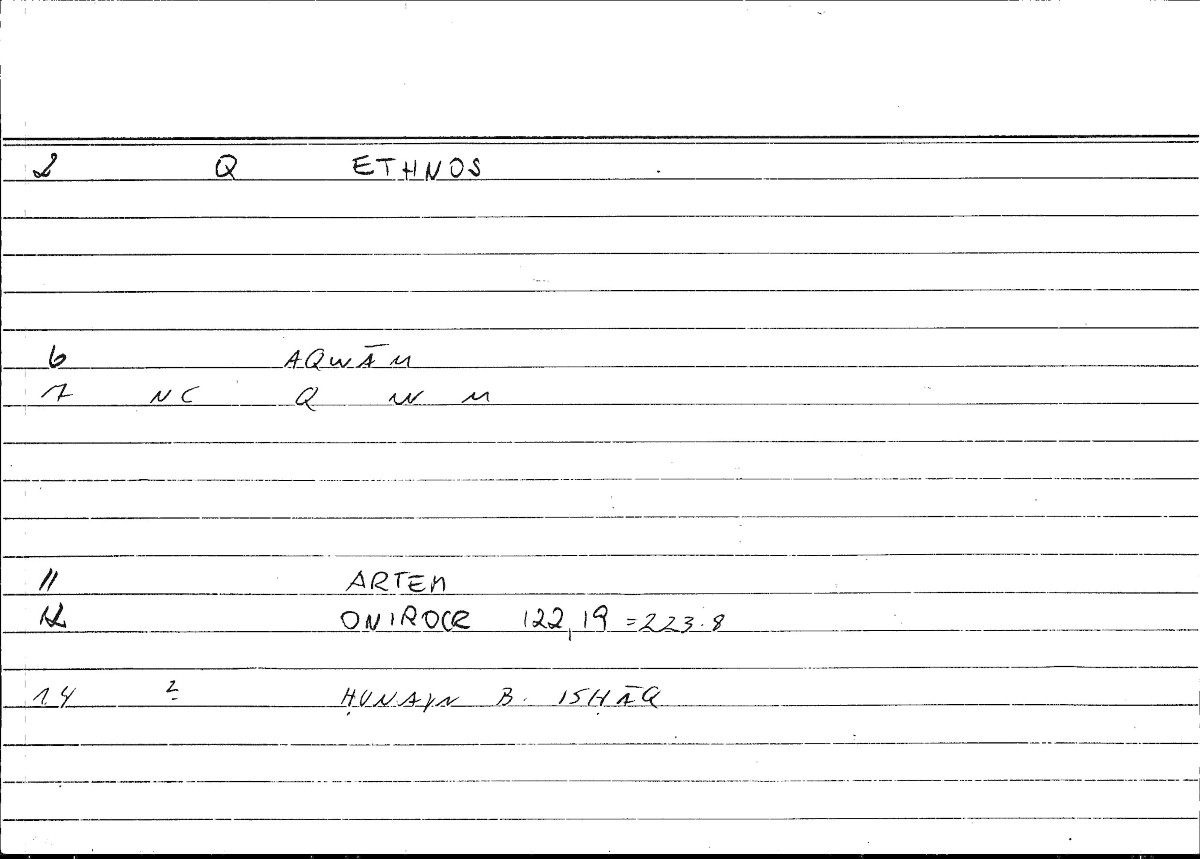 2 Q ETHNOS
6 AQWĀM
7 NC Q W M
11 ARTEM
12 ONIROCR 122,19 =223.8
14 2 ḤUNAYN B. ISḤĀQ